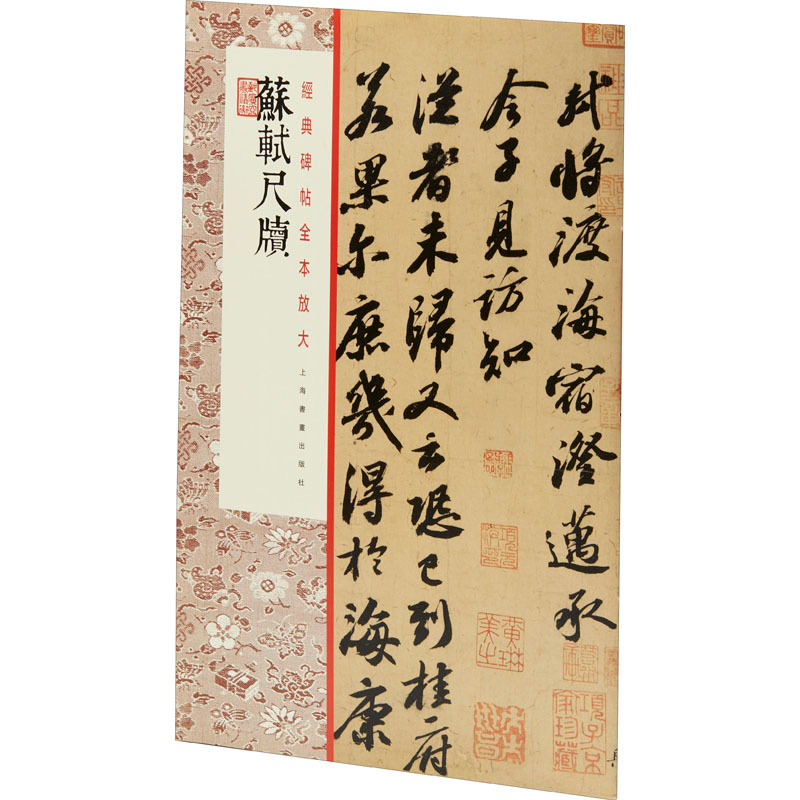 蘇軾尺牘
經典碑帖全本放大
上海書畫出版社
軾將渡海宿澄邁承
令子見訪知
從者未歸又云恐已到桂府
若果尔庶幾得於海康
項子京
家珍藏
黃琳
美之